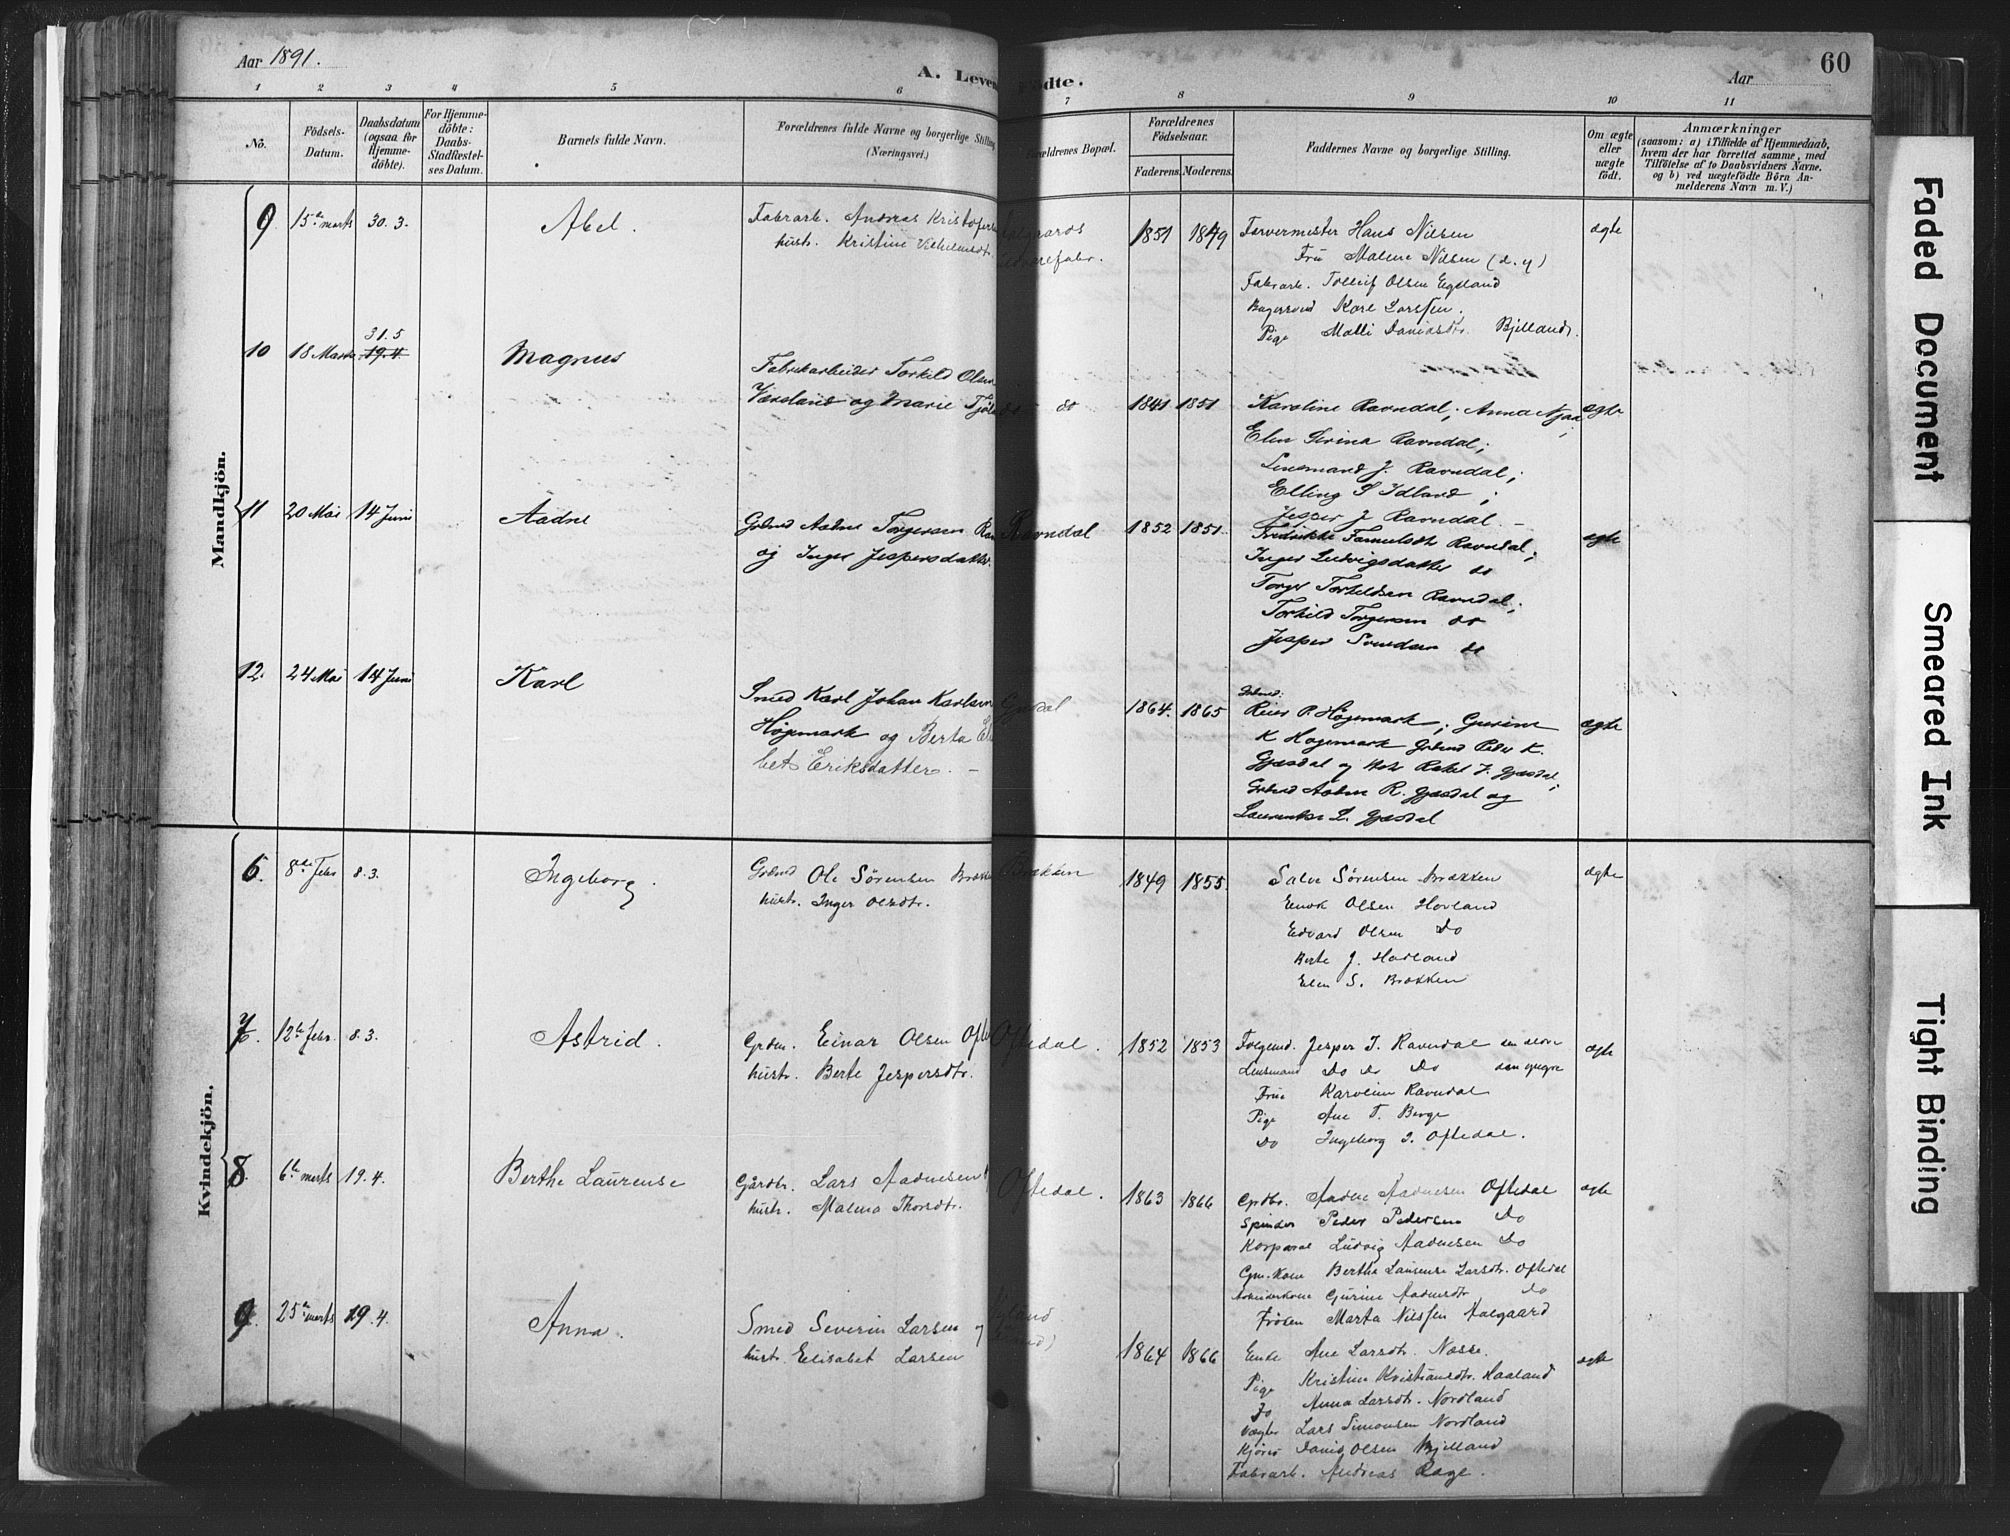 Aar 1891.
A. Leven
ödte.
Aar
60
1 2 3 4 5 6 7 8 9 10 11
No.
Födsels-
Datum.
Daabsdatum
(ogsaa for
Hjemme-
döbte).
For Hjemme-
döbte:
Daabs-
Stadfæstel-
ses Datum.
Barnets fulde Navn.
Forældrenes fulde Navne og borgerlige Stilling
(Næringsvei.)
Forældrenes Bopæl.
Forældrenes
Födselsaar.
Faderens. Moderens.
Faddernes Navne og borgerlige Stilling.
Om ægte
eller
uægte
födt.
Anmærkninger
(saasom: a) i Tilfælde af Hjemmedaab,
hvem der har forrettet samme, med
Tilföielse af to Daabsvidners Navne,
og b) ved uægtefödte Börn An-
melderens Navn m. V.)
Mandkjön.
9 15de marts 30.3. Abel.
Fabrarb. Andreas Kristofers
hustr. Kristine Vilhelmsdtr.
1851 1849
Farvermester Hans Nilsen
Fru Malene Nilsen (d. y)
Fabrarb. Tolleif Olsen Egeland
Bagersvend Karl Larssen.
Pige Malli Danielsdtr. Bjelland.
ægte
10 18 Marts 31.5 19.4. Magnus
Fabrikarbeider Torkild Olsen
Værland og Marie Tjøl
do
1841 1851
Karoline Ravndal, Anna Njaa;
Elen Serina Ravndal;
Lensmand J. Ravndal;
Elling S Idland;
Jesper J Ravndal. –
ægte
11 20 Mai 14 Juni Aadne
Grdmd Aadne Torgersen Ra
og Inger Jespersdatter.
Ravndal
1852 1851
Fredrikke Samuelsdtr Ravndal;
Inger Ludvigsdatter do
Torger Torkeldsen Ravndal;
Torkild Torgersen do
Jesper Svendsen do
ægte
12. 24 Mai 14 Juni Karl
Smed Karl Johan Karlsen
Høgemark og Berta El
bet Eriksdatter. –
Gjesdal
1864. 1865
Grdmd:
Reier P. Høgemark, Gurine
K Høgemark Grdmd Peder K.
Gjesdal og Hstr Rakel J. Gjesdal,
Grdmd Aadne R. Gjesdal og
Laurentse L. Gjesdal
ægte
Kvindekjön.
6. 8de Febr 8.3. Ingeborg.
Grdmd Ole Sörensen Brække
hustr. Inger Olsdtr.
Brækken
1849 1855
Salve Sörensen Brækken
Enok Olsen Hovland
Edvard Olsen Do
Berte J. Hovland
Elen S. Brækken
ægte
7. 12te Febr. 8.3. Astrid.
Grdm. Einar Olsen Ofte
hustr. Berte Jespersdtr.
Oftedal.
1852 1853
Folgemd. Jesper T. Ravndal den ældre
Lensmand Do Do Do den yngre
Frue Karoline Ravndal
Pige Ane T. Berge
Do Ingeborg I. Oftedal.
ægte
8. 6te marts 19.4. Berthe Laurense
Gårdbr. Lars Aadnesen
hustr. Malena Thorsdtr.
Oftedal.
1863 1866
Grdbr. Aadne Aadnesen Oftedal
Spinder Peder Pedersen Do
Korporal Ludvig Aadnesen Do
Grm. Kone Berthe Laurense Larsdtr. Oftedal
Arbeiderkone Gurine Aadnesdtr Do
Frøken Marta Nilssen Aalgaard
ægte
9. 25de marts 19.4. Anna.
Smed Severin Larsen og
hustr. Elisabet Larsen
1864 1866
Enke Ane Larsdtr. Næsse.
Pige Kristine Kristiansdtr. Haaland
Do Anna Larsdtr. Nordland
Vægter Lars Simonsen Nordland
Kjører Daniel Olsen Bjelland
Fabrarb. Andreas Rage.
ægte
Faded Document
Smeared Ink
Tight Binding